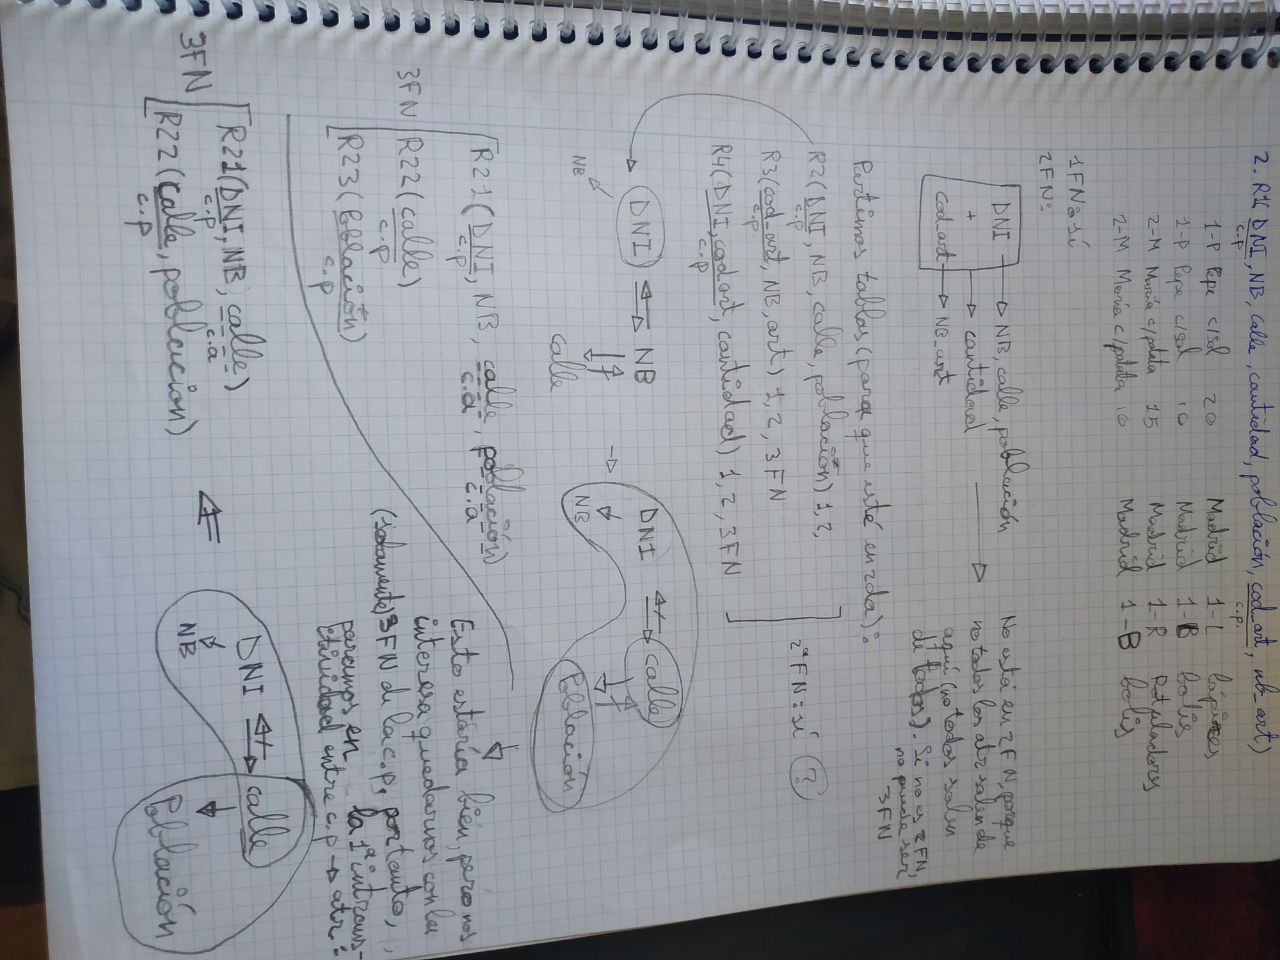 2. R1( DNI, NB, calle, cantidad, población, cod_art, nb_art)
c.p c.p.
1-P Pepe c/sol 20 Madrid 1-L lápices
1-P Pepe c/sol 10 Madrid 1-B bolis
2-M María c/patata 15 Madrid 1-R Rotuladores
2-M María c/patata 10 Madrid 1-B bolis
1FN: sí
2FN:
DNI → NB, calle, población
+ → cantidad
cod_art → NB_art
No está en 2FN, porque
no todos los atr salen de
aquí (no todos salen
de todos). Si no es 2FN,
no puede ser
3FN
Partimos tablas (para que esté en 2da):
R2(DNI, NB, calle, población) 1, 2,
c.p
R3(cod_art, NB, art) 1, 2, 3FN
c.p
R4(DNI, cod art, cantidad) 1, 2, 3FN
c.p
2ª FN: sí ?
DNI NB
NB calle
DNI calle
NB Población
R21(DNI, NB, calle, población)
c.p c.a c.a
3FN R22(calle)
c.p
R23(Población)
c.p
Esto estaría bien, pero nos
interesa quedarnos con la
(solamente) 3FN de la c.p, por tanto,
paramos en la 1ª intrans-
itividad entre c.p → atr:
DNI calle
NB Población
3FN R21(DNI, NB, calle)
c.p c.a
R22(calle, población)
c.p